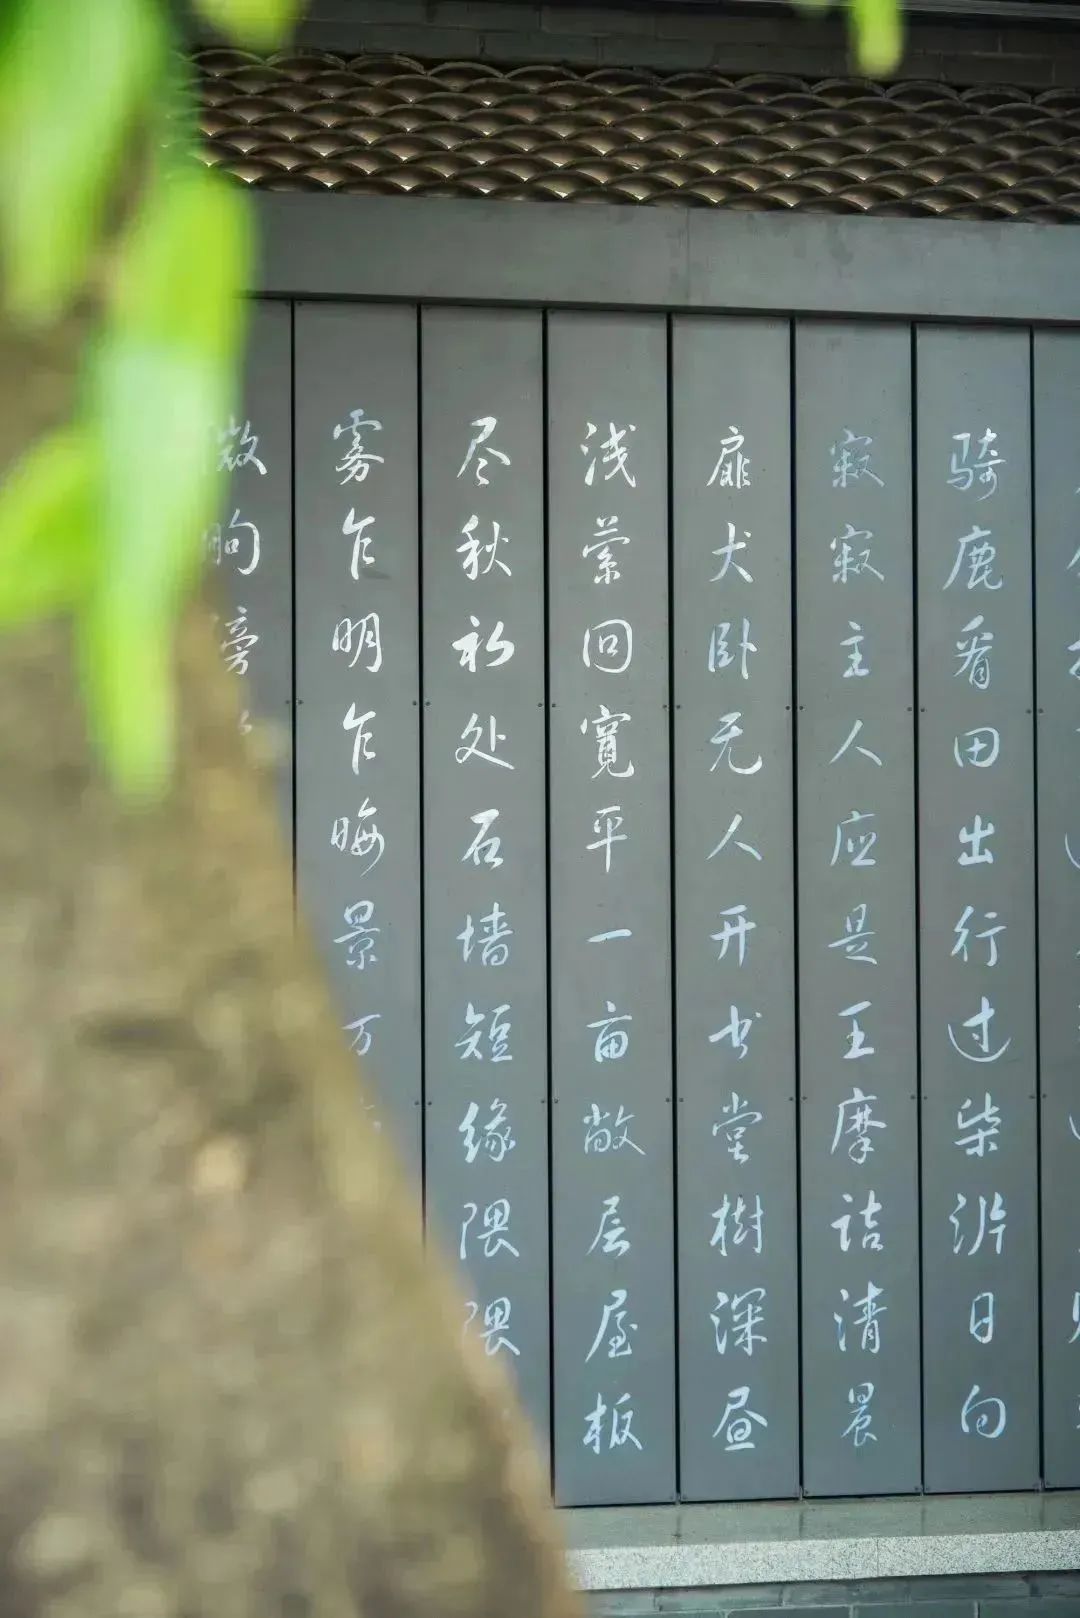 微
雾乍明乍晦景万
尽秋处石墙短缘隈隈
浅萦回寬平一亩敞层屋板
扉犬卧无人开书堂樹深昼
寂寂主人应是王摩诘清晨
骑鹿看田出行过柴日向